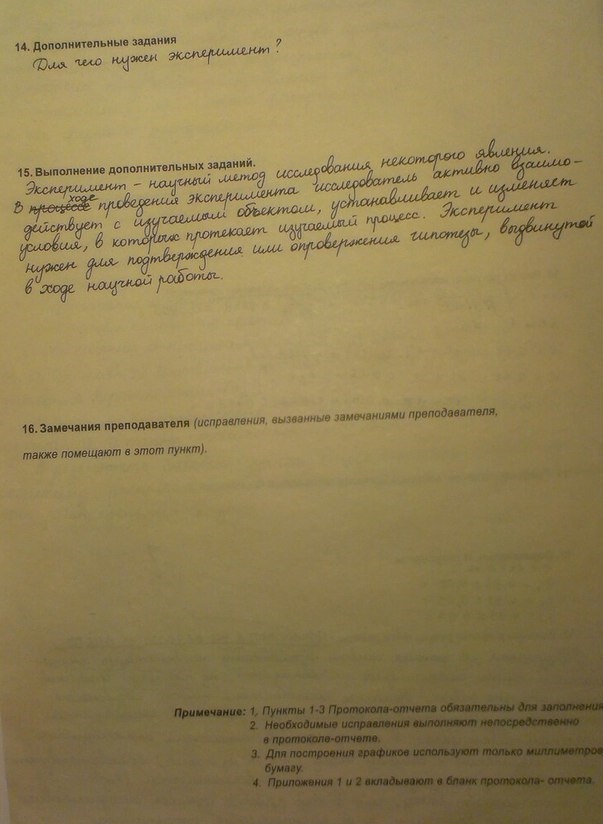 14. Дополнительные задания
Для чего нужен эксперимент?
15. Выполнение дополнительных заданий.
Эксперимент - научный метод исследования некоторого явления.
ходе
В процессе проведения эксперимента исследователь активно взаимо-
действует с изучаемым объектом, устанавливает и изменяет
условия, в которых протекает изучаемый процесс. Эксперимент
нужен для подтверждения или опровержения гипотезы, выдвинутой
в ходе научной работы.
16. Замечания преподавателя (исправления, вызванные замечаниями преподавателя,
также помещают в этот пункт).
Примечание: 1. Пункты 1-3 Протокола-отчета обязательны для заполнения
2. Необходимые исправления выполняют непосредственно
в протоколе-отчете.
3. Для построения графиков используют только миллиметров
бумагу.
4. Приложения 1 и 2 вкладывают в бланк протокола- отчета.